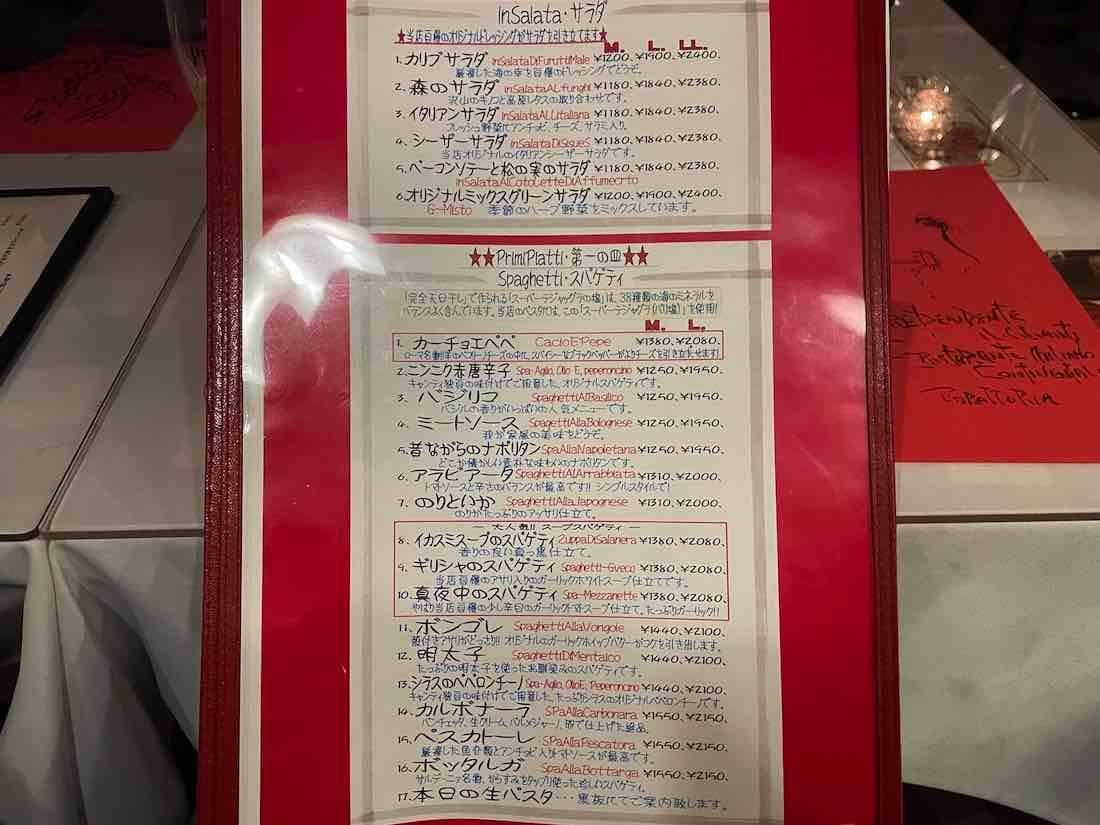 InSalata・サラダ
★当店自慢のオリジナルドレッシングがサラダを引き立てます★
M. L. LL.
1. カリブサラダ InSalataDiFuruttiMale ¥1200、¥1900、¥2400.
厳選した海の幸を自慢のドレッシングでどうぞ。
2. 森のサラダ inSalataALfunghi ¥1180、¥1840、¥2380.
沢山のキノコと高原レタスの取り合わせです。
3. イタリアンサラダ InSalataALLitaliana ¥1180、¥1840、¥2380.
フレッシュ野菜にアンチョビ、チーズ、サラミ入り。
4. シーザーサラダ InSalataDiSisueS ¥1180、¥1840、¥2380.
当店オリジナルのイタリアンシーザーサラダです。
5. ベーコンソテーと松の実のサラダ ¥1180、¥1840、¥2380.
inSalataAlCotoCetteDiAffumecrto
6. オリジナルミックスグリーンサラダ ¥1200、¥1900、¥2400.
G-Misto 季節のハーブ野菜をミックスしています。
★★PrimiPiatti・第一の皿★★
Spaghetti・スパゲティ
「完全天日干し」で作られる「スーパーテジャクラの塩」は、38種類の海のミネラルを
バランスよく含んでいます。当店のパスタは、この「スーパーテジャグラ(バリ塩)」を使用!!
M. L.
1. カーチョエペペ CacioEPepe ¥1380、¥2,080.
ローマ名物!羊のペコリーノチーズの中に、スパイシーなブラックペッパーがよりチーズを引き立たせます!
2. ニンニク赤唐辛子 Spa-Aglio, Olio E, peperoncino ¥1250、¥1950.
キャンティ独自の味付けでご用意した、オリジナルスパゲティです。
3. バジリコ SpaghettiAlBasilico ¥1250、¥1950.
バジルの香りがいっぱいの人気メニューです。
4. ミートソース SpagettiAllaBolognese ¥1250、¥1950.
我が家風の美味をどうぞ。
5. 昔ながらのナポリタン SpaAllaNapoletana ¥1250、¥1950.
どこか懐かしい素朴な味わいのナポリタンです。
6. アラビアータ SpaghettiAlArrabbiata ¥1310、¥2000.
トマトソースと辛さのバランスが最高です!! シンプルスタイルで!
7. のりといか SpaghettiAllaJapognese ¥1310、¥2000.
のりがたっぷりのアッサリ仕立て。
― 大人気!! スープスパゲティ ―
8. イカスミスープのスパゲティ ZuppaDiSalanera ¥1380、¥2080.
香りの良い真っ黒仕立て。
9. ギリシャのスパゲティ Spaghetti-Gveco ¥1380、¥2080.
当店自慢のアサリ入りのガーリックホワイトスープ仕立てです。
10. 真夜中のスパゲティ Spa-Mezzanette ¥1380、¥2080.
やはり当店自慢の少し辛目のガーリックトマトスープ仕立て。たっぷりガーリック!!
11. ボンゴレ SpaghettiAllaVongole ¥1440、¥2100.
殻付きアサリがどっさり!! オリジナルのガーリックホイップバターがコクを引き出します。
12. 明太子 SpaghettiDiMentaico ¥1440、¥2100.
たっぷりの明太子を使ったお馴染みのスパゲティです。
13. シラスのペペロンチーノ Spa-Aglio, OlioE, Peperoncino ¥1440、¥2100.
キャンティ独自の味付けでご用意した、たっぷりシラスのオリジナルペペロンチーノです。
14. カルボナーラ SPaAllaCarbonara ¥1550、¥2150.
パンチェッタ、生クリーム、パルメジャーノ、卵で仕上げた絶品。
15. ペスカトーレ SPaAllaPescatora ¥1550、¥2150.
厳選した魚介類とアンチョビ入りトマトソースが最高です。
16. ボッタルガ SpaAllaBottarga ¥1550、¥2150.
サルデーニャ名物、からすみをタップリ使った珍しいスパゲティ。
17. 本日の生パスタ・・・黒板にてご案内致します。